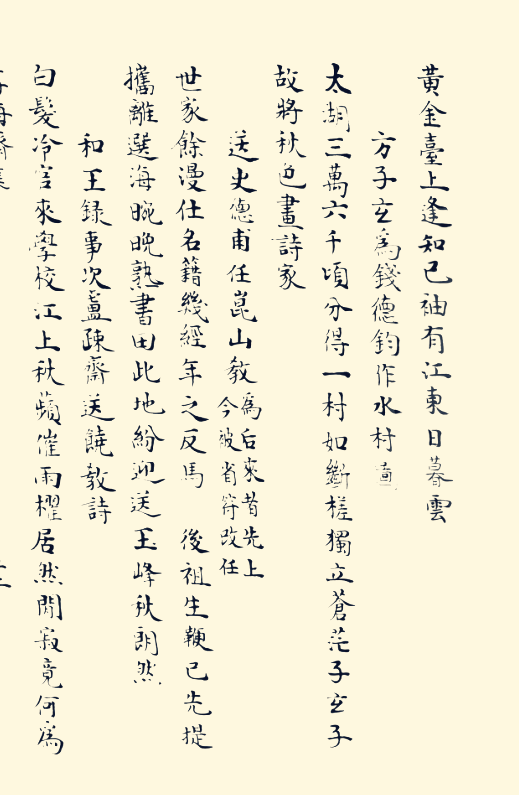 黃金臺上逢知己袖有江東日暮雲
方子玄爲錢德鈞作水村
太湖三萬六千頃分得一村如斷槎獨立蒼茫子玄子
故將秋色畫詩家
送史德甫任崑山教爲后來者先上
今被省符改任
世家餘漫仕名籍幾經年之反馬 後祖生鞭已先提
攜離選海畹晚熟書田此地紛迎送玉峰秋朗然
和王録事次盧疎齋送饒教詩
白髮冷官來學校江上秋蘋催雨櫂居然閒寂竟何爲